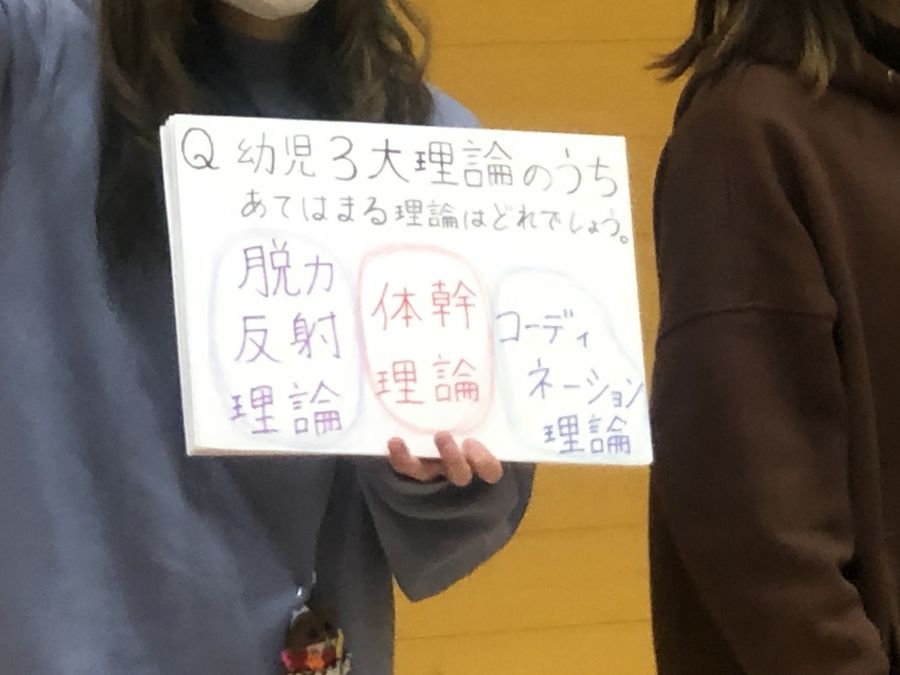 Q 幼児3大理論のうち
あてはまる理論はどれでしょう。
脱力
反射
理論
体幹
理論
コーディ
ネーション
理論